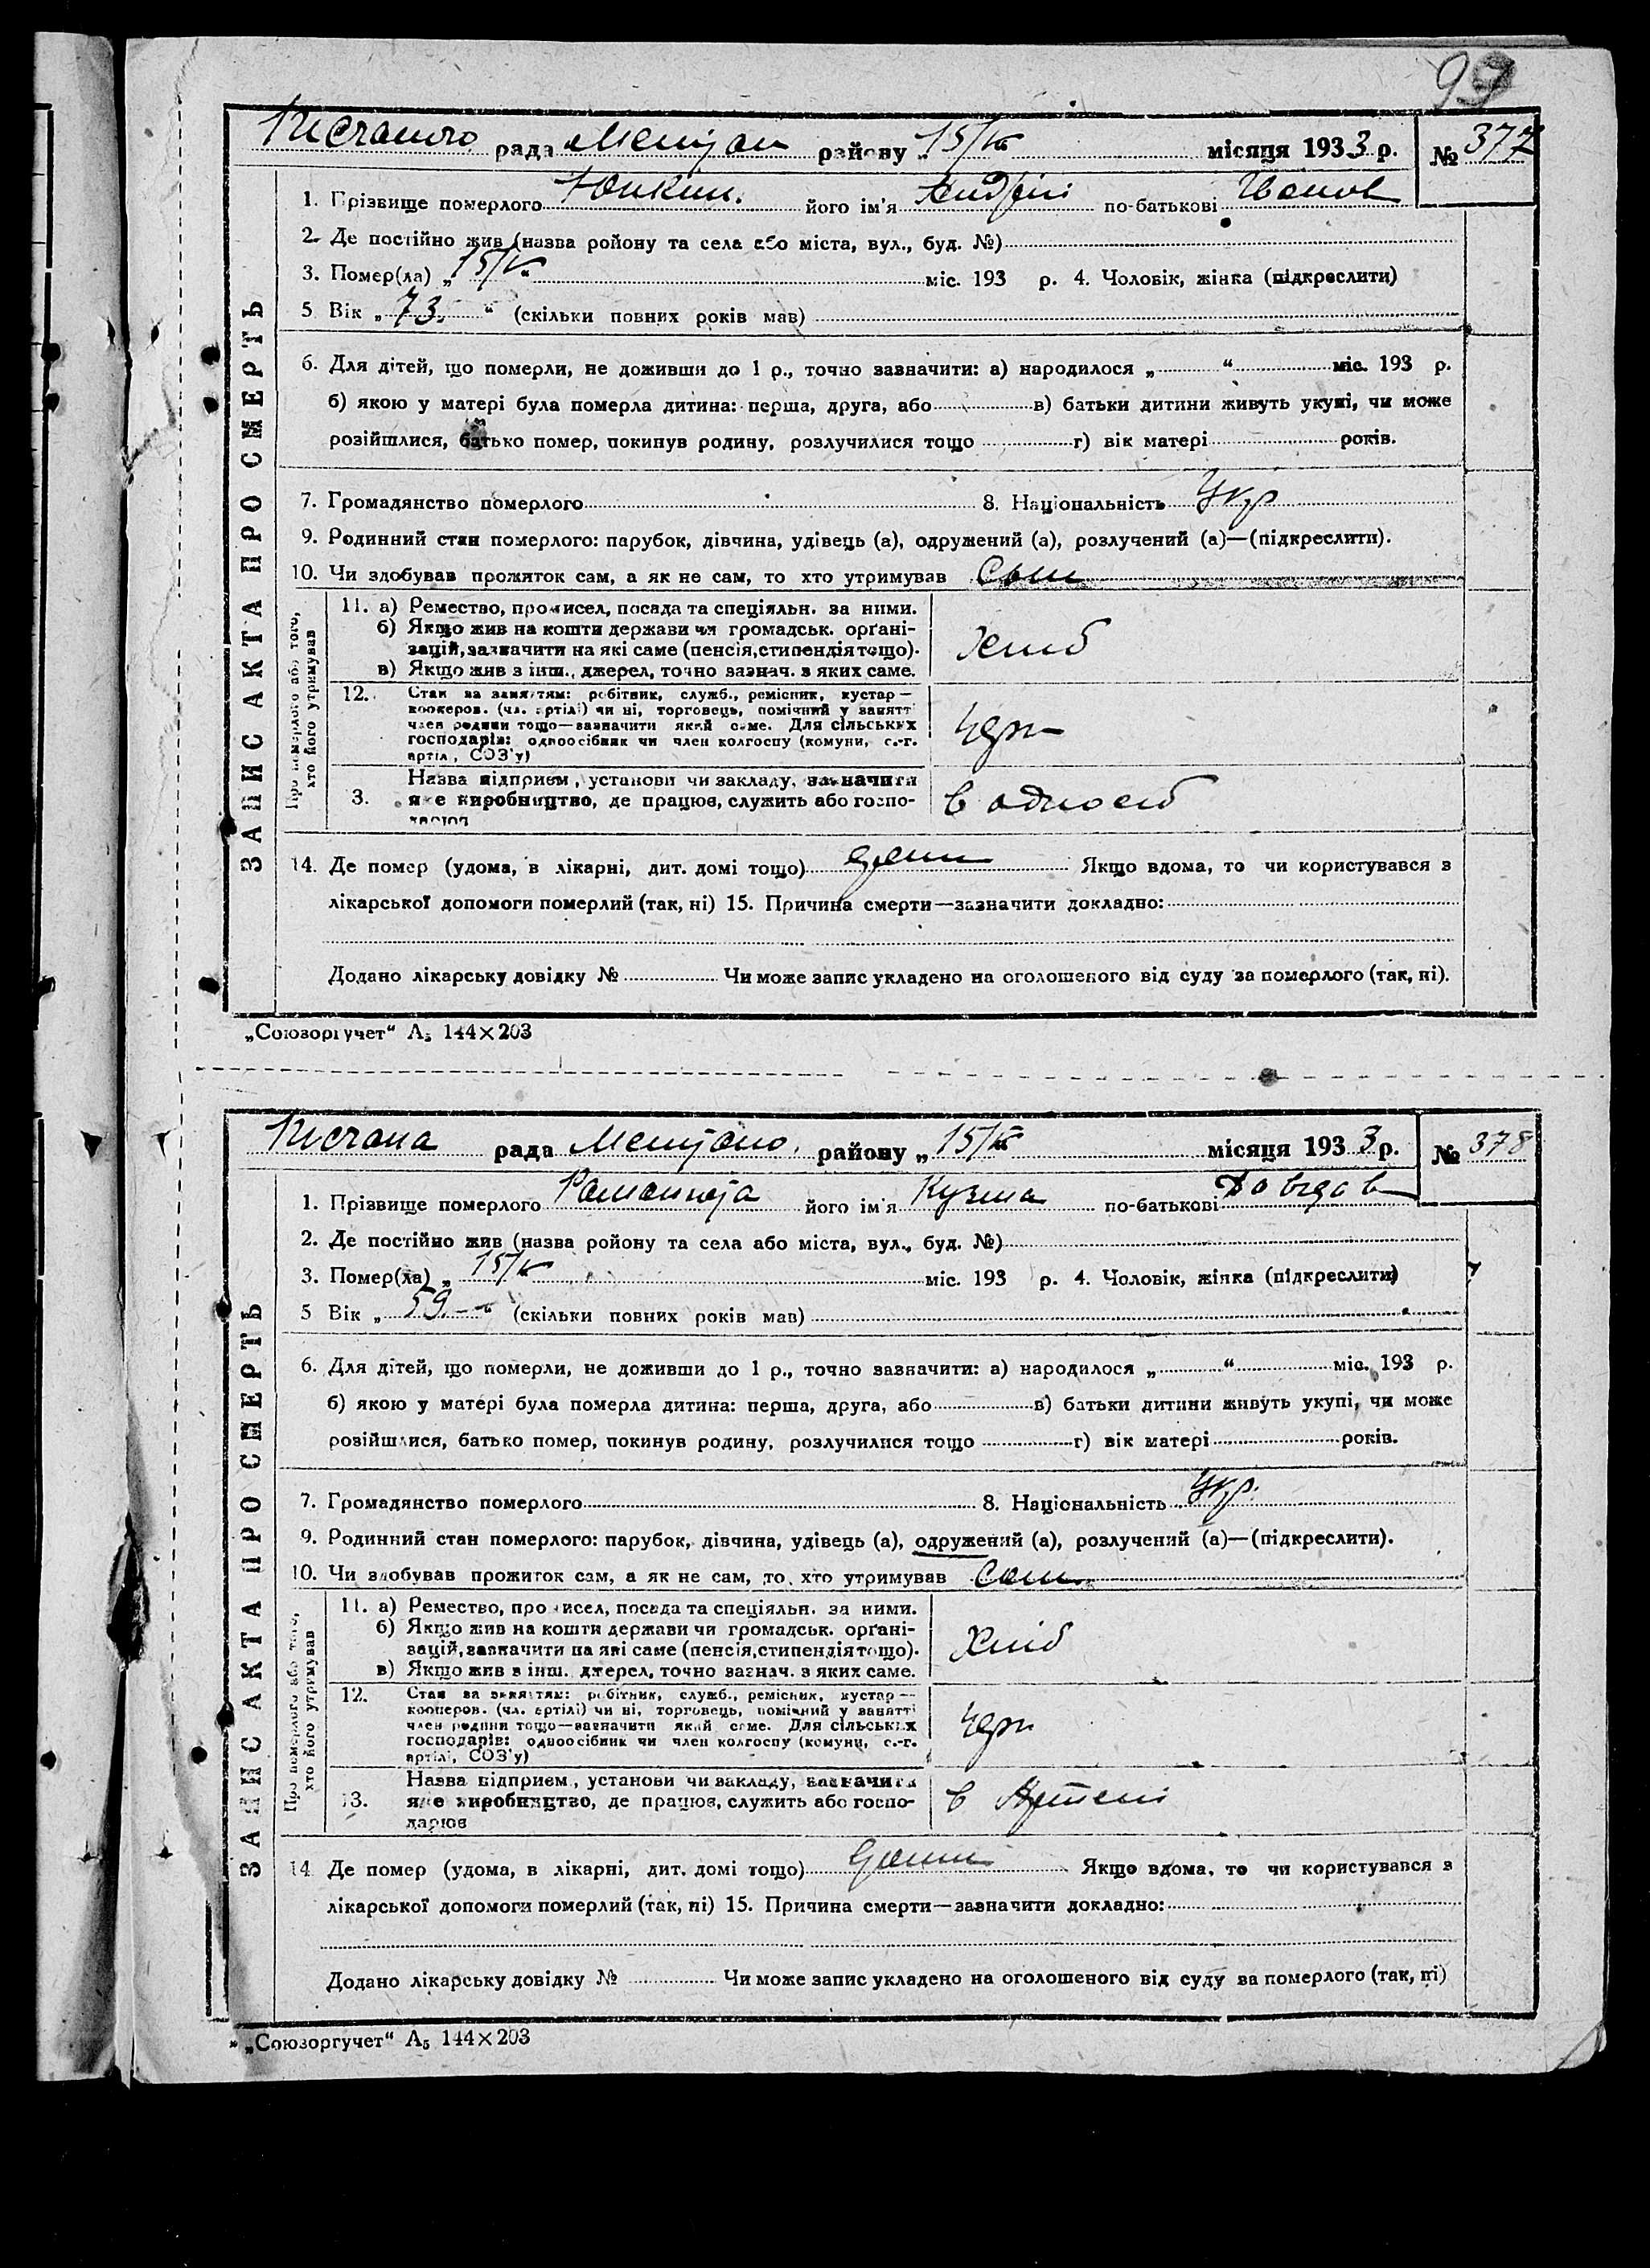 99
рада району „15/V“ місяця 1933 р. № 377
ЗАПИС АКТА ПРО СМЕРТЬ
1. Прізвище померлого Юпкин. його ім'я Андрій по-батькові Иванов
2. Де постійно жив (назва ройону та села або міста, вул., буд. №)
3. Помер(ла) „15/V“ міс. 193 р. 4. Чоловік, жінка (підкреслити)
5 Вік „73.“ (скільки повних років мав)
6. Для дітей, що померли, не доживши до 1 р., точно зазначити: а) народилося „ “ міс. 193 р.
б) якою у матері була померла дитина: перша, друга, або в) батьки дитини живуть укупі, чи може
розійшлися, батько помер, покинув родину, розлучилися тощо г) вік матері років.
7. Громадянство померлого 8. Національність Укр
9. Родинний стан померлого: парубок, дівчина, удівець (а), одружений (а), розлучений (а)—(підкреслити).
10. Чи здобував прожиток сам, а як не сам, то хто утримував Сын
Про померлого або того,
хто його утримував
11. а) Ремество, промисел, посада та спеціяльн. за ними.
б) Якщо жив на кошти держави чи громадськ. орґані-
зацій, зазначити на які саме (пенсія, стипендія тощо).
в) Якщо жив з інш., джерел, точно зазнач. з яких саме.
Хліб
12. Стан за заняттям: робітник, служб., ремісник, кустар—
кооперов. (чл. артілі) чи ні, торговець, помічний у занятті
член родини тощо—зазначити який саме. Для сільських
господарів: одноосібник чи член колгоспу (комуни, с.-г.
артіл, СОЗ'у)
3. Назва підприєм, установи чи закладу, зазначити
яке виробництво, де працює, служить або госпо-
дарює
в одноосіб
14. Де помер (удома, в лікарні, дит. домі тощо) дома Якщо вдома, то чи користувався з
лікарської допомоги померлий (так, ні) 15. Причина смерти—зазначити докладно:
Додано лікарську довідку № Чи може запис укладено на оголошеного від суду за померлого (так, ні).
„Союзоргучет“ А₅ 144×203
рада району „15/V“ місяця 1933 р. № 378
ЗАПИС АКТА ПРО СМЕРТЬ
1. Прізвище померлого його ім'я Кузма по-батькові Давидов
2. Де постійно жив (назва ройону та села або міста, вул., буд. №)
3. Помер(ла) „15/V міс. 193 р. 4. Чоловік, жінка (підкреслити)
5 Вік „59.“ (скільки повних років мав)
6. Для дітей, що померли, не доживши до 1 р., точно зазначити: а) народилося „ “ міс. 193 р.
б) якою у матері була померла дитина: перша, друга, або в) батьки дитини живуть укупі, чи може
розійшлися, батько помер, покинув родину, розлучилися тощо г) вік матері років.
7. Громадянство померлого 8. Національність Укр.
9. Родинний стан померлого: парубок, дівчина, удівець (а), одружений (а), розлучений (а)—(підкреслити).
10. Чи здобував прожиток сам, а як не сам, то хто утримував Сам
Про померлого або того,
хто його утримував
11. а) Ремество, промисел, посада та спеціяльн. за ними.
б) Якщо жив на кошти держави чи громадськ. орґані-
зацій, зазначити на які саме (пенсія, стипендія тощо).
в) Якщо жив з інш. джерел, точно зазнач. з яких саме.
Хліб
12. Стан за заняттям: робітник, служб., ремісник, кустар—
кооперов. (чл. артілі) чи ні, торговець, помічний у занятті
член родини тощо—зазначити який саме. Для сільських
господарів: одноосібник чи член колгоспу (комуни, с.-г.
артілі, СОЗ'у)
13. Назва підприєм, установи чи закладу, зазначити
яке виробництво, де працює, служить або госпо-
дарює
в Артелі
14 Де помер (удома, в лікарні, дит. домі тощо) дома Якщо вдома, то чи користувався з
лікарської допомоги померлий (так, ні) 15. Причина смерти—зазначити докладно:
Додано лікарську довідку № Чи може запис укладено на оголошеного від суду за померлого (так, ні)
„Союзоргучет“ А₅ 144×203